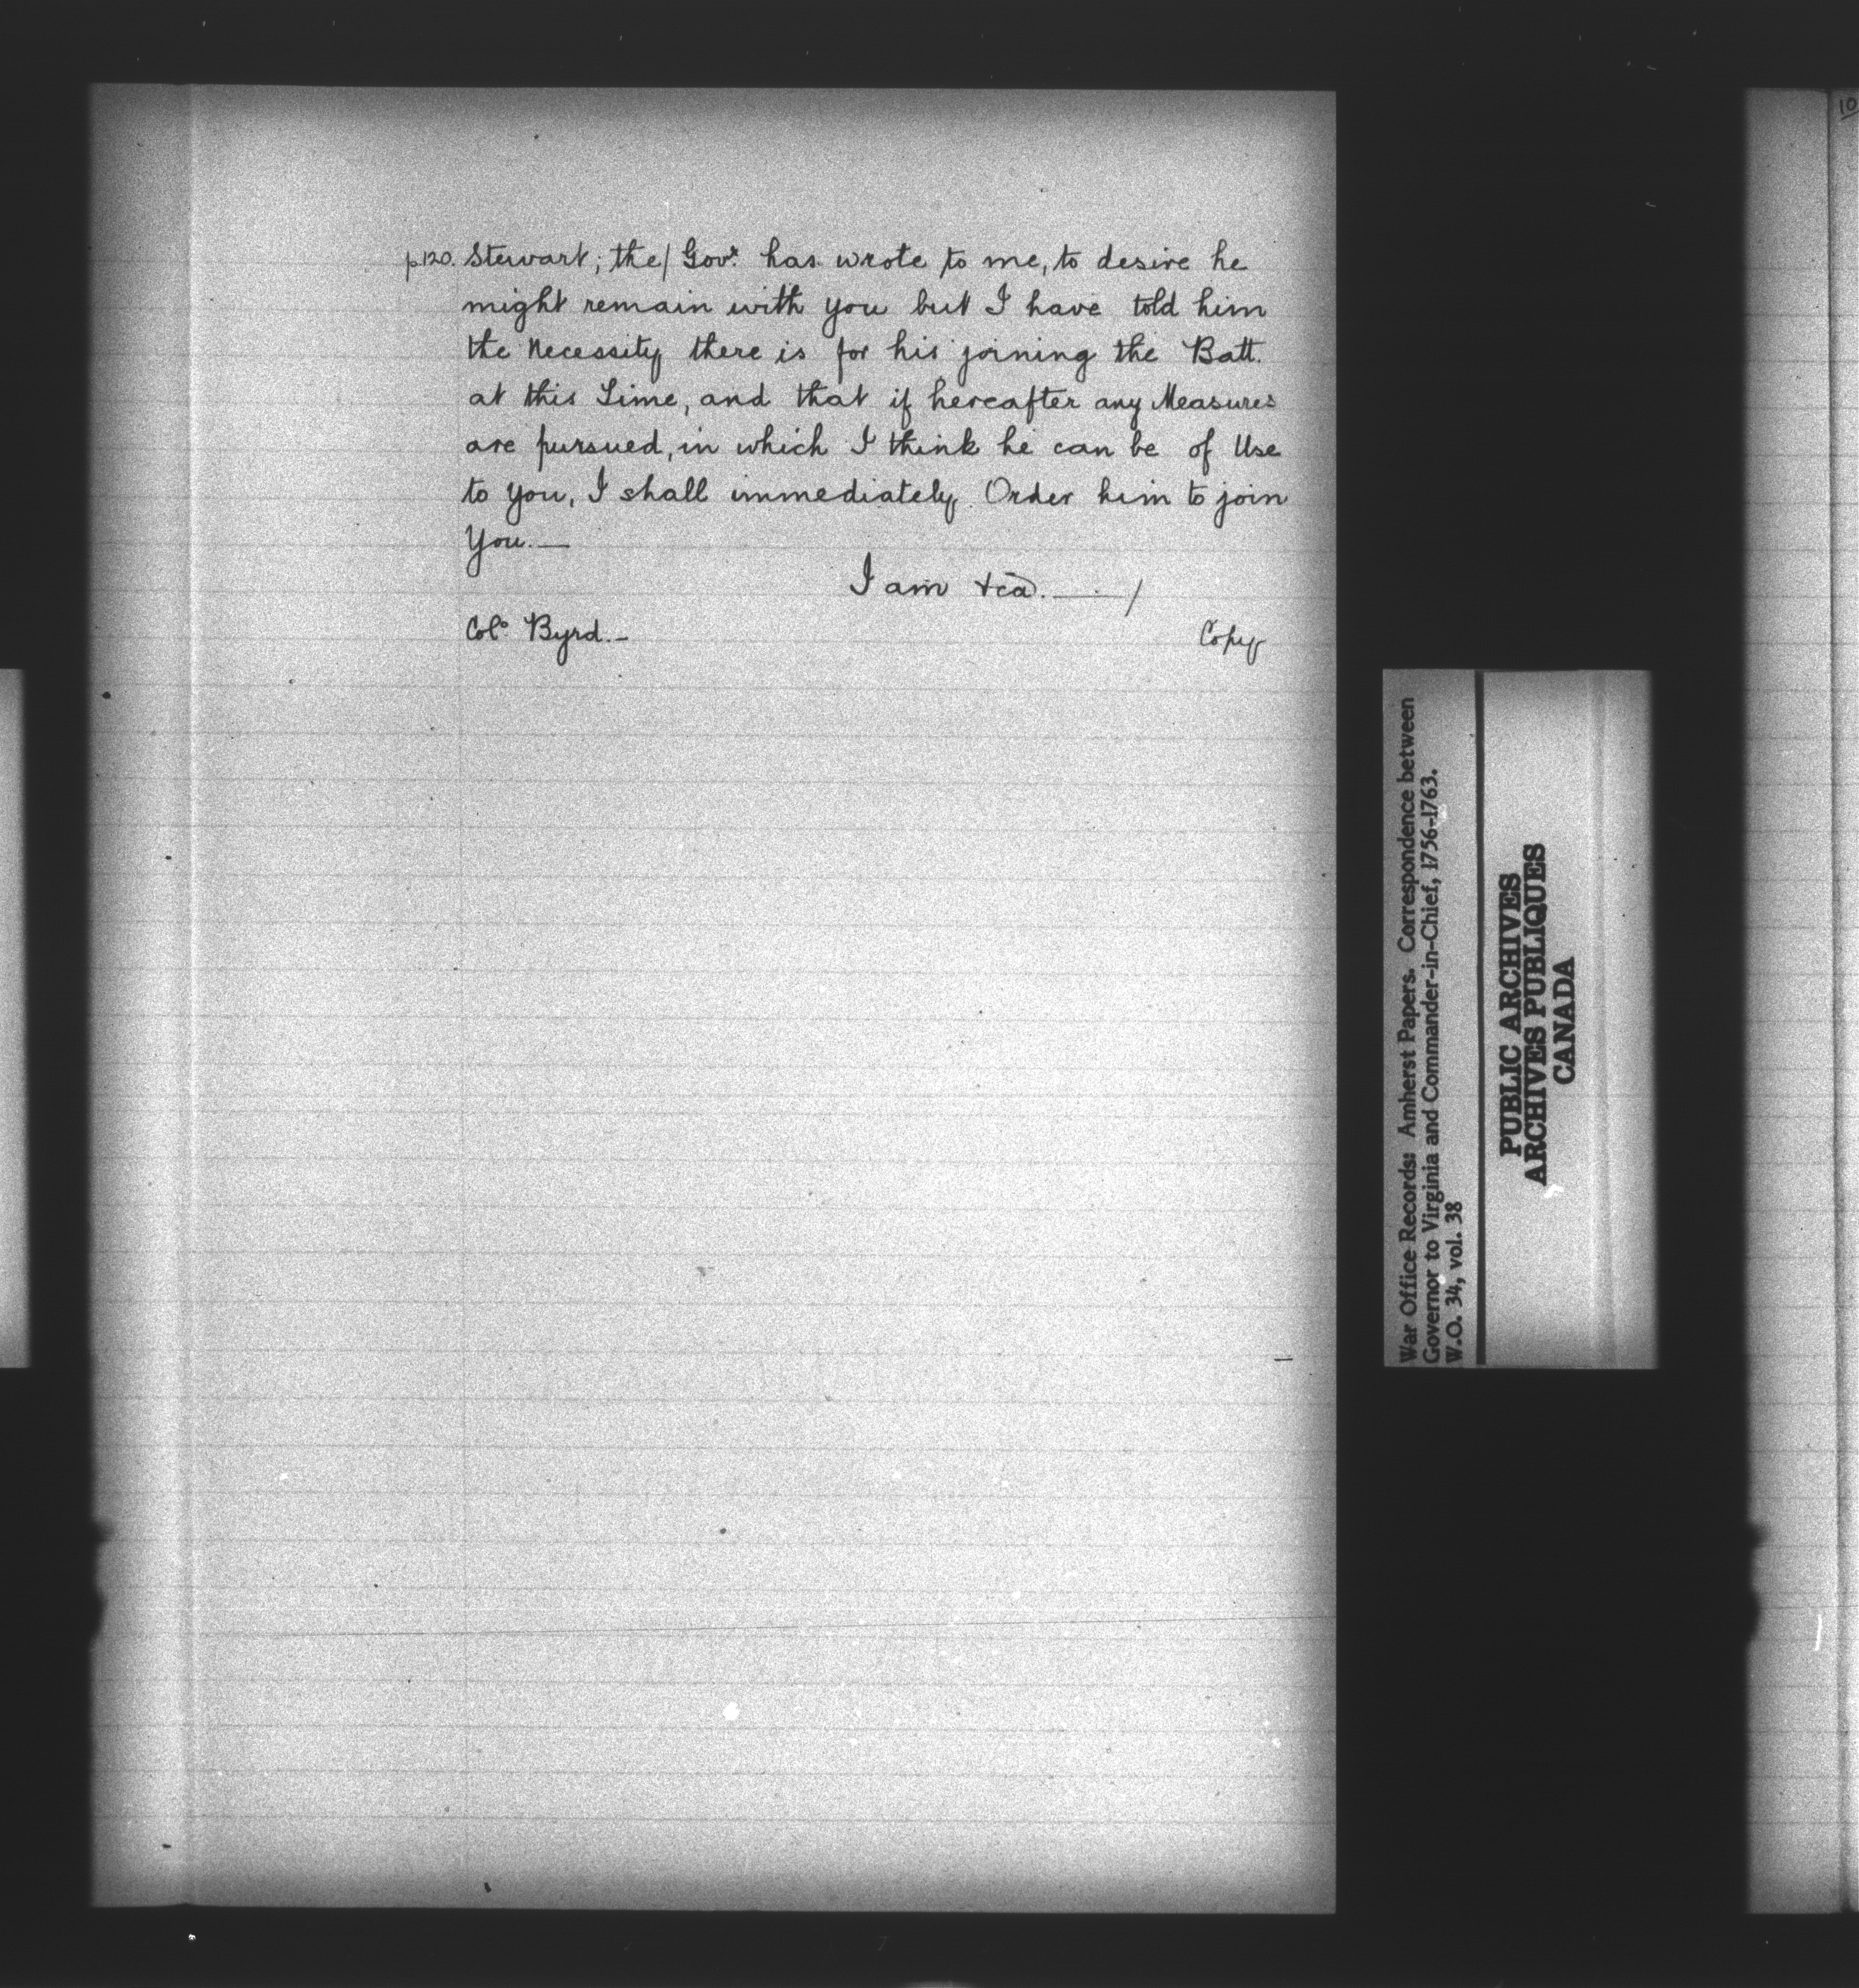 p.120. Stewart; the/ Govr. has wrote to me, to desire he
might remain with you but I have told him
the Necessity there is for his joining the Batt.
at this Time, and that if hereafter any Measures
are pursued, in which I think he can be of Use
to you, I shall immediately Order him to join
You.—
I am &ca. — /
Colo. Byrd.-
Copy
War Office Records: Amherst Papers. Correspondence between
Governor to Virginia and Commander-in-Chief, 1756-1763.
W.O. 34, vol. 38
PUBLIC ARCHIVES
ARCHIVES PUBLIQUES
CANADA
10